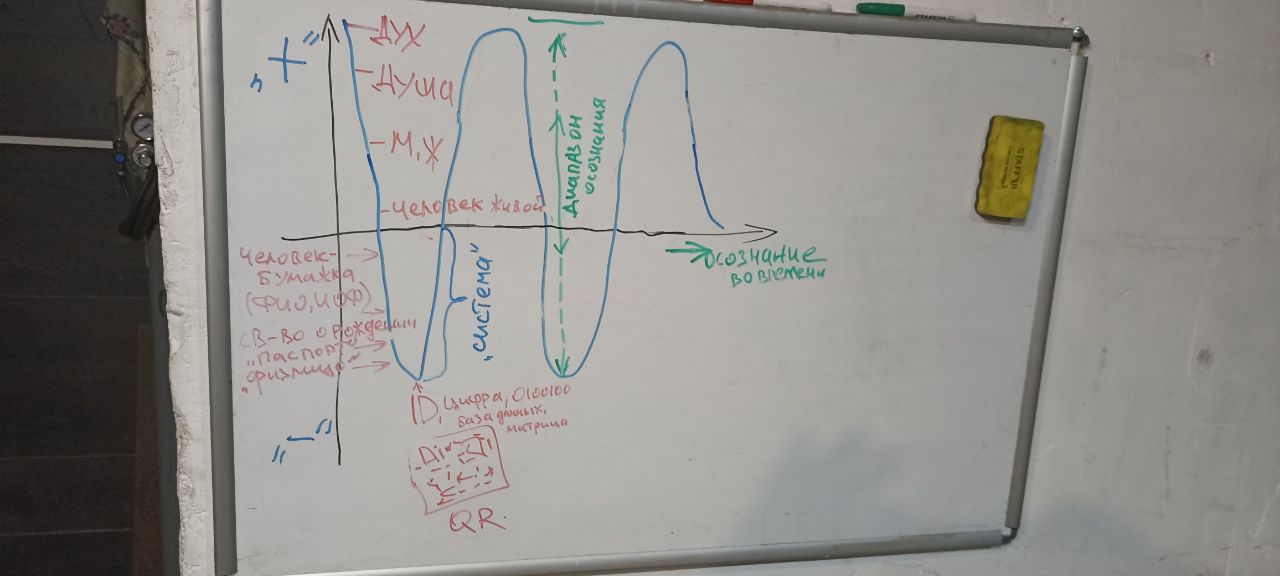 „+”
ДУХ
ДУША
М, Ж
-человек живой
человек-
бумажка
(ФИО, ИОФ)
св-во о рождении
„паспорт”
„физлицо”
„система”
диапазон
осознания
осознание
во времени
„-”
ID, цифра, 0100100
база данных,
матрица
QR
STAFF